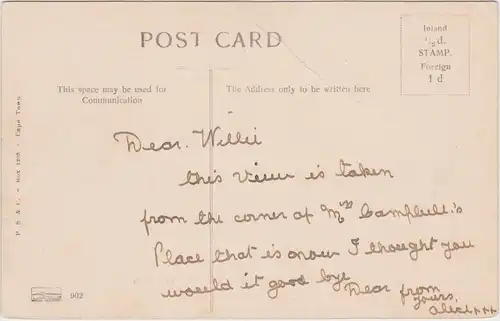 POST CARD
Inland
½d.
STAMP.
Foreign
1 d
This space may be used for
Communication
The Address only to be written here
P. S & C. - Box 1205 - Cape Town
Dear. Willie
this view is taken
from the corner of Mrs Campbell's
Place that is now I thought you
would it good bye
Dear from
yours,
alice xxx
902